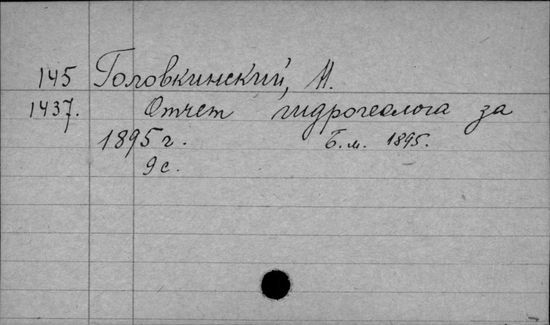 145 Головкинский, Н.
1437. Отчет гидрогеолога за
1895 г. Б. м. 1895.
9 с.